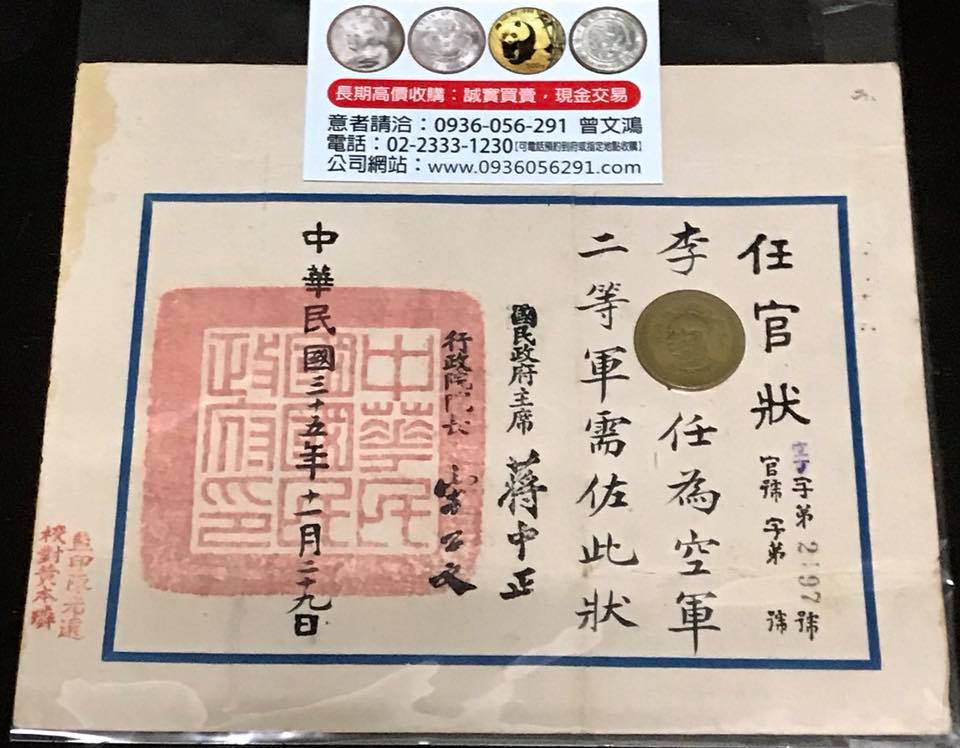 長期高價收購：誠實買賣，現金交易
意者請洽：0936-056-291 曾文鴻
電話：02-2333-1230【可電話預約到府或指定地點收購】
公司網站：www.0936056291.com
任官狀
字第2197號
官號 字第 號
李 任為空軍
二等軍需佐此狀
國民政府主席 蔣中正
行政院院長 宋子文
中華民國三十五年十一月二十九日
中華民
國國民
政府印
監印陳光遠
校對黃本